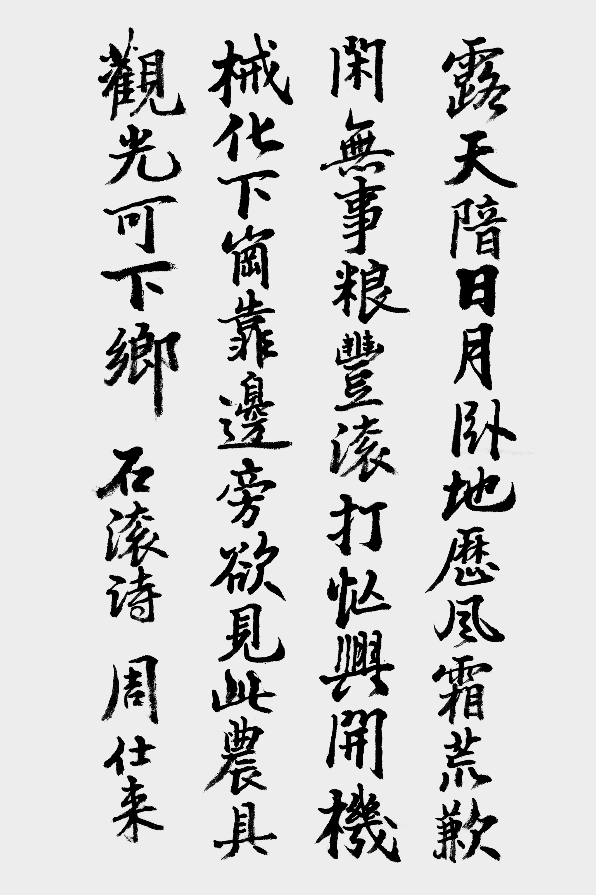 露天陪日月卧地歷風霜荒歉
閑無事粮豐滚打忙興開機
械化下崗靠邊旁欲見此農具
觀光可下鄉 石滚诗 周仕来